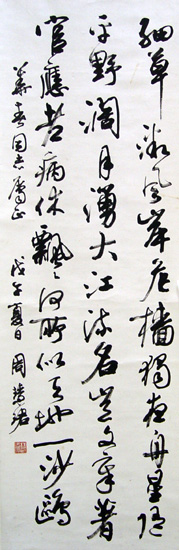 細草微風岸危檣獨夜舟星垂
平野闊月湧大江流名豈文章著
官應老病休飄々何所似天地一沙鷗
同志屬正 戊午夏日 周慧珺